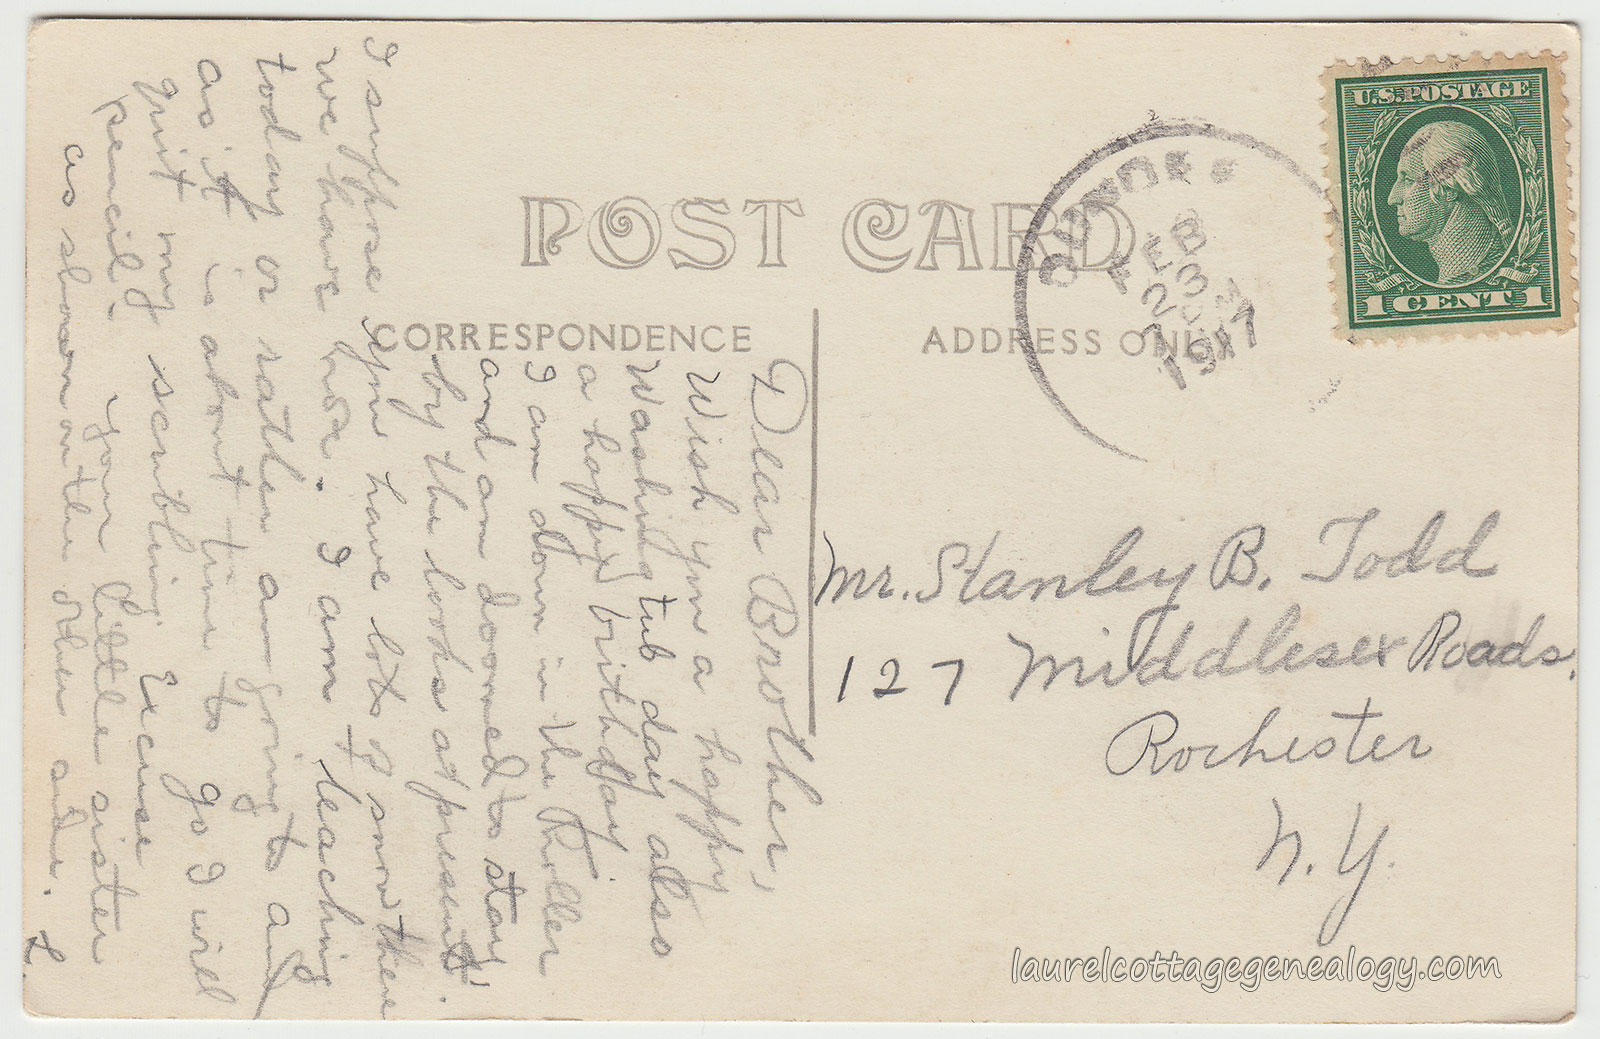 POST CARD
CORRESPONDENCE
ADDRESS ONLY
U.S. POSTAGE
1 CENT 1
DUNDEE
FEB
23
1917
Mr. Stanley B. Todd
127 Middlesex Roads.
Rochester
N.Y.
Dear Brother,
Wish you a happy
Washing tub day also
a happy birthday
I am down in the Holler
and am doomed to stay
by the looks at present.
I suppose you have lots of snow there
we have hear. I am teaching
today or rather am going to and
as it is about time to go I will
quit my scribling. Excuse
pencil. your little sister
as shown on the other side. L.
laurelcottagegenealogy.com